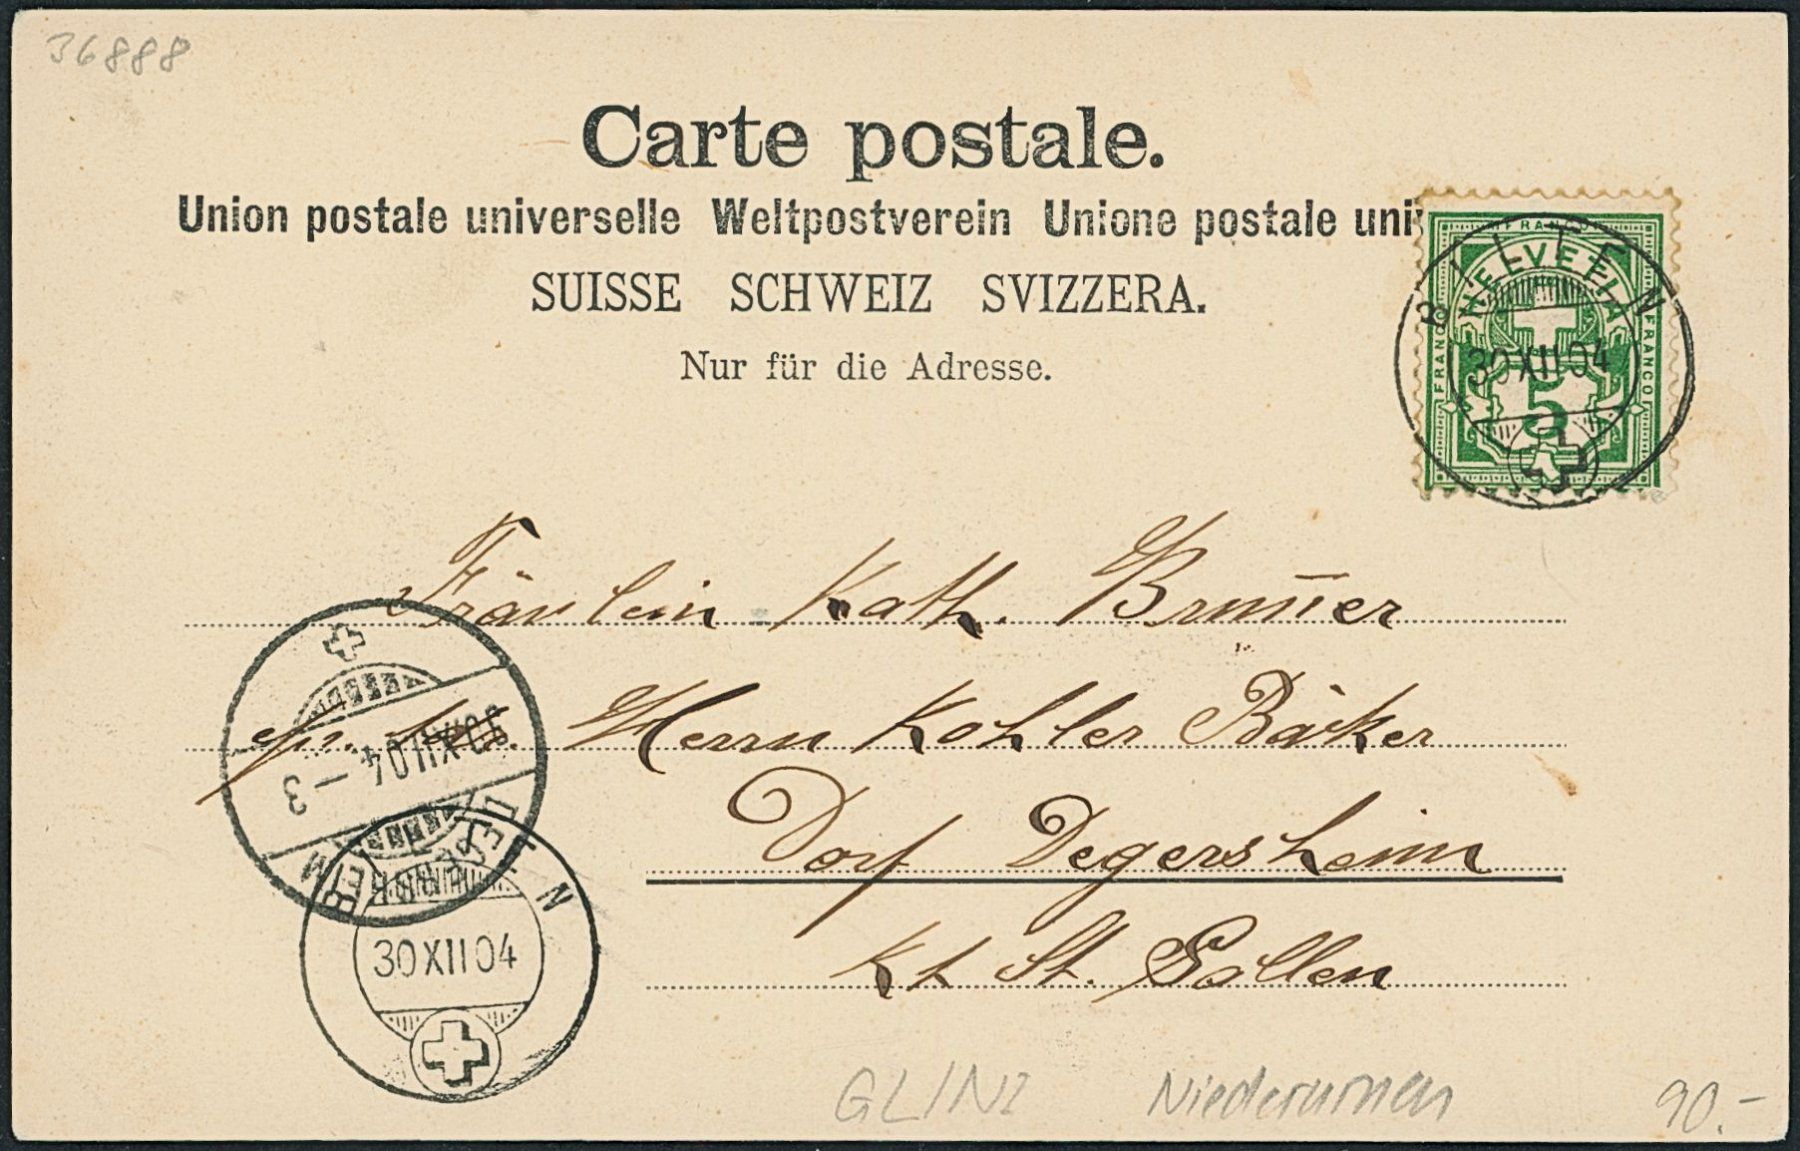 36888
Carte postale.
Union postale universelle Weltpostverein Unione postale uni
SUISSE SCHWEIZ SVIZZERA.
Nur für die Adresse.
FRANCO
HELVETIA
FRANCO
FRANCO
5
BILTEN
30 XII 04
Fräulein Kath. Brunner
Herrn Kohler Bäker
Dorf Degersheim
Kt St. Gallen
30.XII 04 – 3
DEGERSHEIM
BILTEN
30 XII 04
GLINZ Niederurnen 90.–